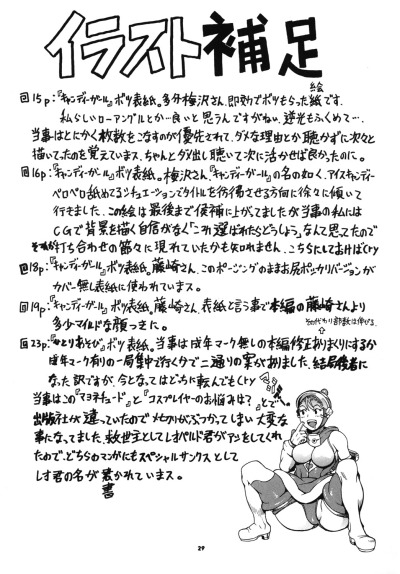 イラスト補足
回15p:『キャンディーガール』ボツ表紙。多分梅沢さん。即効でボツもらった絵紙です。
私らしいローアングルとか…良いと思うんですがねい、逆光もふくめて…、
当事はとにかく枚数をこなすのが優先されて、ダメな理由とか聴かずに次々と
描いてったのを覚えています。ちゃんとダメ出し聴いて次に活かせば良かったのに。
回16p:『キャンディーガール』ボツ表紙。梅沢さん。『キャンディーガール』の名の如く、アイスキャンディー
ペロペロ舐めてるシチュエーションでタイトルを彷彿させる方向に徐々に傾いて
行きました。この絵は最後まで候補に上がってましたが当事の私には
CGで背景を描く自信がなく「これ選ばれたらどうしよう」なんて思ってたので
それが打ち合わせの節々に現れていたかも知れません。こちらにしておけばCtry
回18p:『キャンディーガール』ボツ表紙。藤崎さん。このポージングのままお尻ポッカリバージョンが
カバー無し表紙に使われています。
回19p:『キャンディーガール』ボツ表紙。藤崎さん。表紙と言う事で本編の藤崎さんより
多少マイルドな顔つきに。
その代わり部数は伸びる
回23p:『ひとりあそび』ボツ表紙。当事は成年マーク無しの本編修正あまりにするか
成年マーク有りの一局集中で行くかで二通りの案がありました。結局後者に
なった訳ですが、今となってはどっちに転んでもCtry
当事はこの『マヨチュード』と『コスプレイヤーのお悩みは?』とで
出版社が違っていたのでメ切りがぶつかってしまい大変な
事になってました。救世主としてレオパルド君がアシをしてくれ
たので、どちらのマンガにもスペシャルサンクスとして
レオ君の名が書かれています。
29